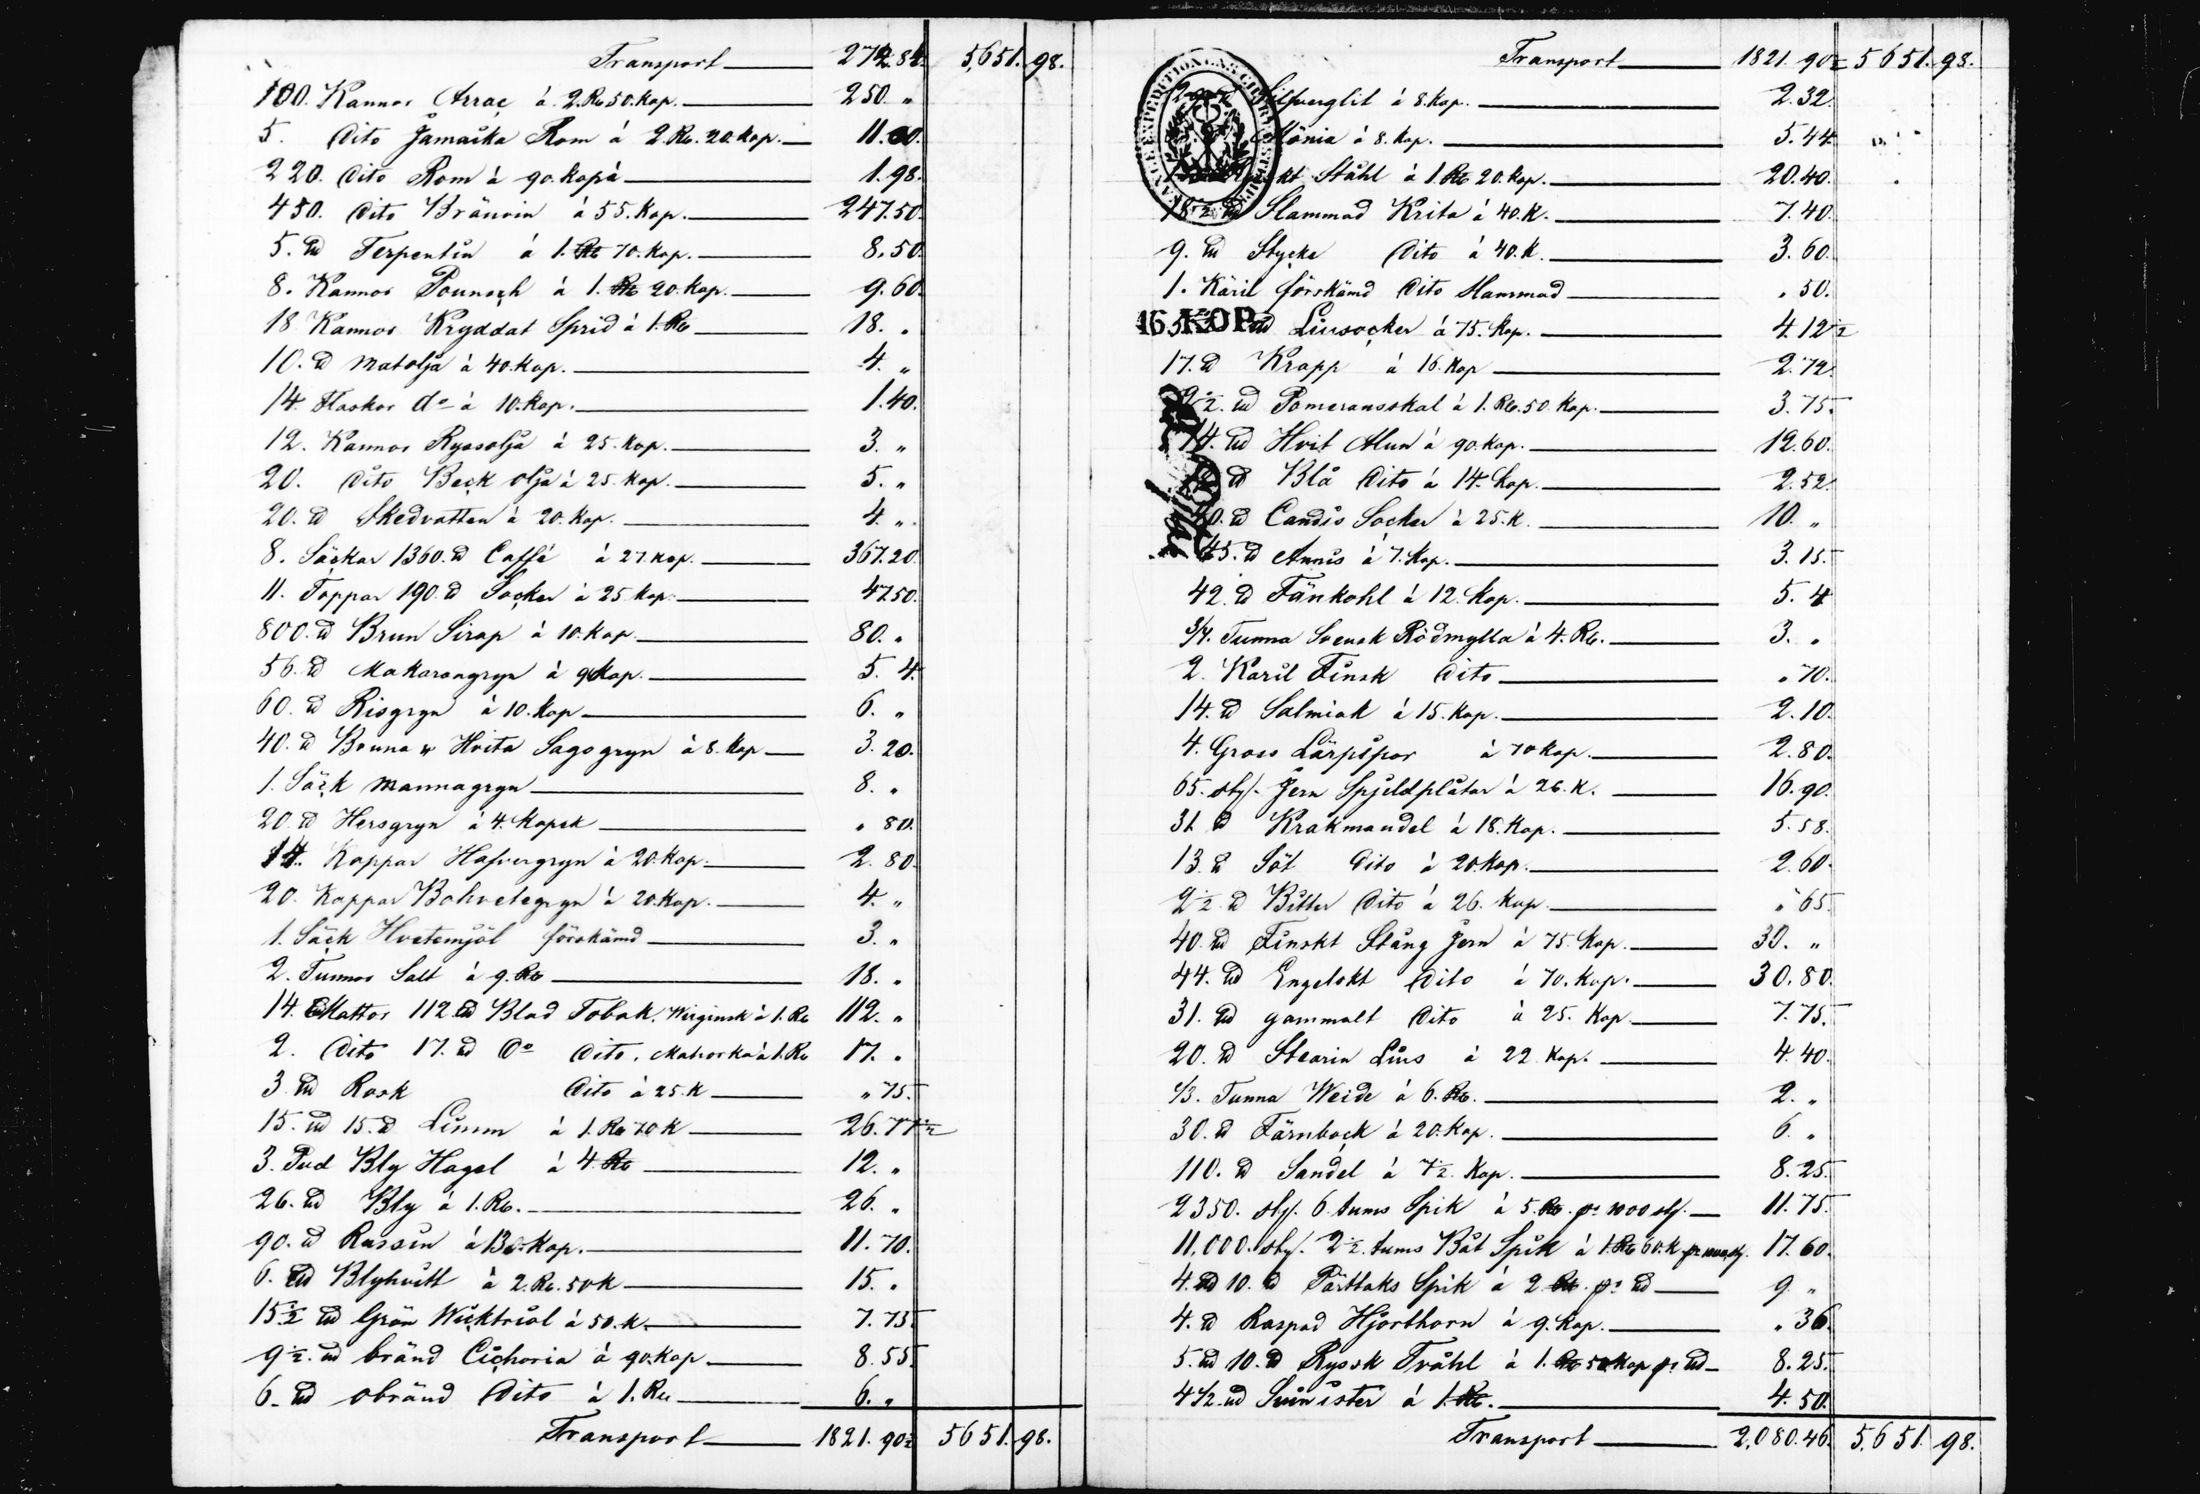 Transport 2742.84. 5,651. 98.
100. Kannor Arrac á 2. Rb 50. Kop. 250. "
5. Dito Jamaika Rom á 2. Rb. 20. Kop. 11.00.
220. Dito Rom á 90. Kop á 1.98.
450. Dito Bränvin á 55. Kop. 247.50.
5. ℔ Terpentin á 1. Rb 70. Kop. 8.50.
8. Kannor Pounsch á 1. Rb 20. Kop. 9.60.
18 Kannor Kryddat Sprid á 1. Rb 18. "
10. ℔ Matolja á 40. Kop. 4. "
14. Flaskor do á 10. Kop. 1.40.
12. Kannor Ryssolja á 25. Kop. 3. "
20. Dito Beck olja á 25. Kop. 5. "
20. ℔ Skedvatten á 20. Kop. 4. "
8. Säckar 1360. ℔ Caffé á 27. Kop. 367.20.
11. Toppar 190. ℔ Socker á 25 Kop. 47.50.
800. ℔ Brun Sirap á 10. Kop 80. "
56. ℔ Makarongryn á 9 Kop. 5. 4.
60. ℔ Risgryn á 10. Kop 6. "
40. ℔ Bruna o Hvita Sagogryn á 8. Kop 3.20.
1. Säck Mannagryn 8. "
20. ℔ Hersgryn á 4. Kopek " 80.
14. Kappar Hafvergryn á 20. Kop. 2.80.
20. Kappar Bohvetegryn á 20. Kop. 4. "
1. Säck Hvetemjöl förskämd 3. "
2. Tunnor Salt á 9. Rb 18. "
14. Mattor 112 ℔ Blad Tobak, Wirginsk á 1. Rb 112. "
2. Dito 17. ℔ Do Dito, Mahorka á 1. Rb 17. "
3. ℔ Rosk Dito á 25. K " 75.
15. L℔ 15. ℔ Limm á 1. Rb 70 K 26.77½
3. Pud Bly Hagel á 4. Rb 12. "
26. L℔ Bly á 1. Rb. 26. "
90. ℔ Russin á 13. Kop. 11.70.
6. L℔ Blyhvitt á 2. Rb. 50 K 15. "
15½ L℔ Grön Wicktriol á 50. K. 7.75.
9½. L℔ bränd Cichoria á 90. Kop 8.55.
6. L℔ obränd Dito á 1. Rb 6. "
Transport 1821. 90½ 5651. 98.
Transport 1821. 90½ 5651. 98.
Silfverglit á 8. Kop. 2.32.
Mönia á 8. Kop. 5.44.
Stähl á 1. Rb 20. Kop. 20.40.
18½ L℔ Slammad Krita á 40. K. 7.40.
9. L℔ Stycke Dito á 40. K. 3.60.
1. Käril förskämd Dito Slammad " 50.
16 KOP.
5½ L℔ Liusocker á 75. Kop. 4.12½
17. ℔ Krapp á 16. Kop 2.72.
2½. L℔ Pomeransskal á 1. Rb. 50. Kop. 3.75.
14. L℔ Hvit Alun á 90. Kop. 12.60.
℔ Blå Dito á 14. Kop. 2.52.
40. ℔ Candis Socker á 25. K. 10. "
45. ℔ Annis á 7. Kop. 3.15.
42. ℔ Fänkohl á 12. Kop. 5. 4
3/4. Tunna Svensk Rödmylla á 4. Rb. 3. "
2. Käril Finsk Dito " 70.
14. ℔ Salmiak á 15. Kop. 2.10.
4. Gross Lärpipor á 70 Kop. 2.80.
65. sty. Jern Spjeldplåtar á 26. K. 16.90.
31 ℔ Krakmandel á 18. Kop. 5.58.
13 ℔ Söt Dito á 20. Kop. 2.60.
2½. ℔ Bitter Dito á 26. Kop. " 65.
40. L℔ Finskt Stång Jern á 75. Kop. 30. "
44. L℔ Engelskt Dito á 70. Kop. 30.80.
31. L℔ gammalt Dito á 25. Kop. 7.75.
20. ℔ Stearin Lius á 22. Kop. 4.40.
1/3. Tunna Weide á 6. Rb. 2. "
30. ℔ Färnbock á 20. Kop. 6. "
110. ℔ Sandel á 7½. Kop. 8.25.
2350. sty. 6 tums Spik á 5. Rb. pr 1000 sty. 11.75.
11,000. sty. 2½. tums Båt Spik á 1. Rb 60. K pr 1000 sty. 17.60.
4. L℔ 10. ℔ Pärttaks Spik á 2. Rb. pr L℔ 9. "
4. ℔ Raspad Hjorthorn á 9. Kop. " 36.
5. L℔ 10. ℔ Ryssk Tråhl á 1. Rb 50 Kop pr L℔ 8.25.
4 1/2. L℔ Svinister á 1. Rb. 4.50.
Transport 2,080.46. 5,651. 98.